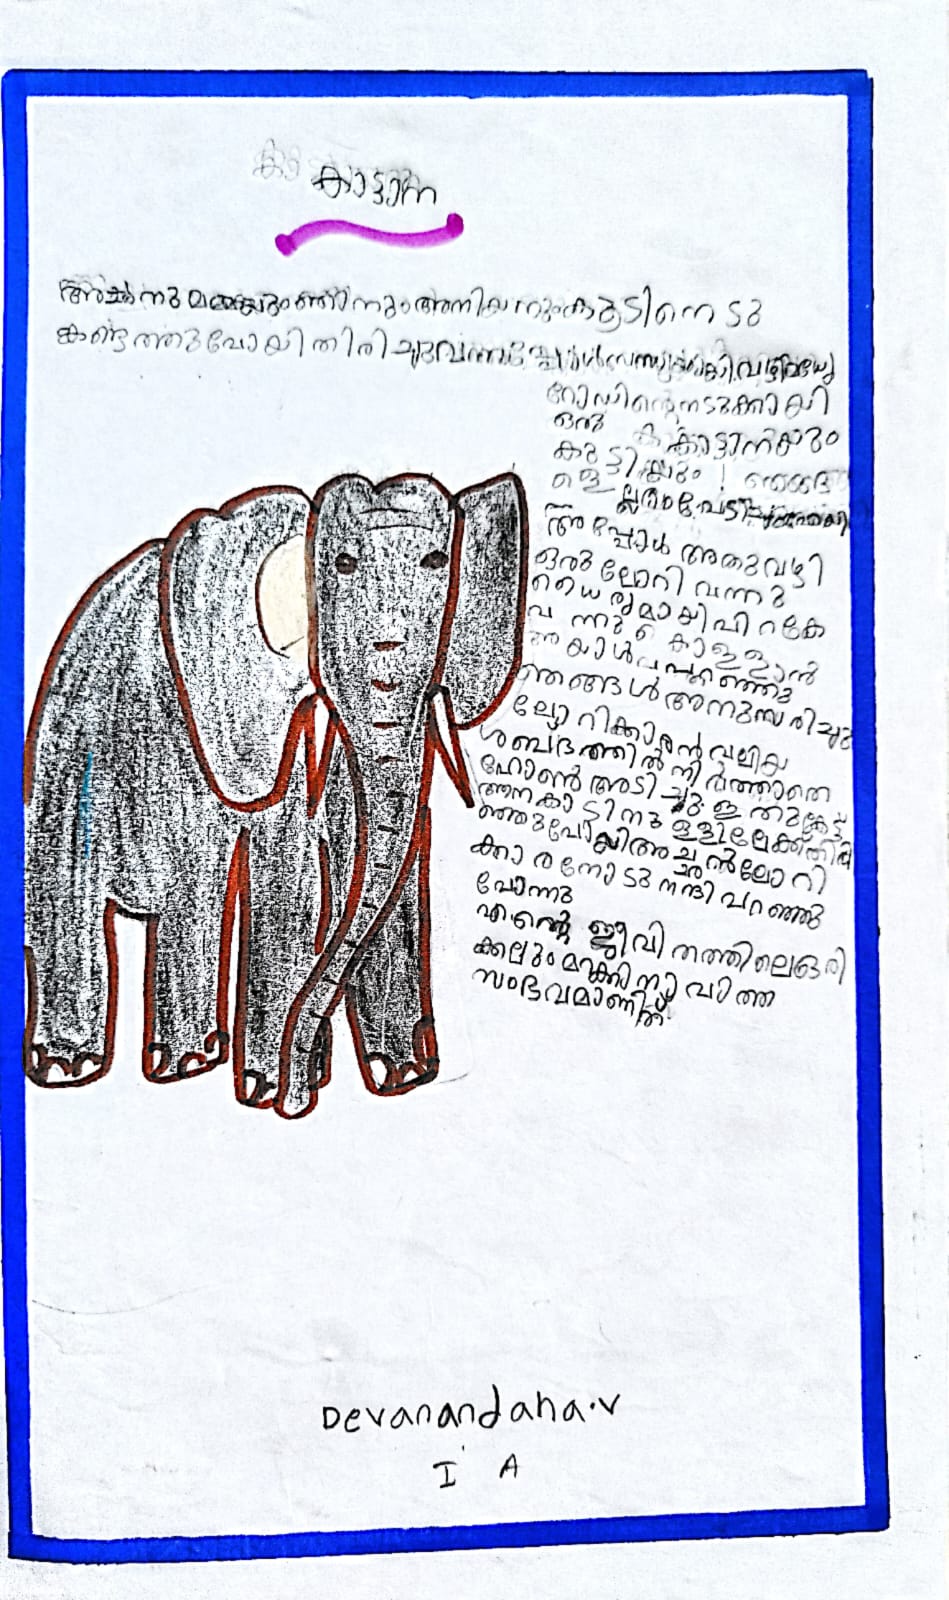 കാ കാട്ടാന
അച്ഛനും അമ്മയും ഞാനും അനിയനും കൂടി നെടു
ങ്കണ്ടത്തു പോയി തിരിച്ചു വന്നപ്പോൾ സന്ധ്യ
റോഡിന്റെ നടുക്കായി
ഒരു കാട്ടാനയും
കുട്ടിയും !
ല്ലാം പേടി
അപ്പോൾ അതുവഴി
ഒരു ലോറി വന്നു
ധൈര്യമായി പിറകേ
വന്നു കൊള്ളാൻ
അയാൾ പറഞ്ഞു
ഞങ്ങൾ അനുസരിച്ചു
ലോറിക്കാരൻ വലിയ
ശബ്ദത്തിൽ നിർത്താതെ
ഹോൺ അടിച്ചു ഇതുകേട്ട്
ആന കാട്ടിനുള്ളിലേക്ക് തിരി
ഞ്ഞുപോയി അച്ഛൻ ലോറി
ക്കാരനോടു നന്ദി പറഞ്ഞു
പോന്നു
എന്റെ ജീവിതത്തിലെ ഒരി
ക്കലും മറക്കാനാവാത്ത
സംഭവമാണിത്
Devanandana.v
I A